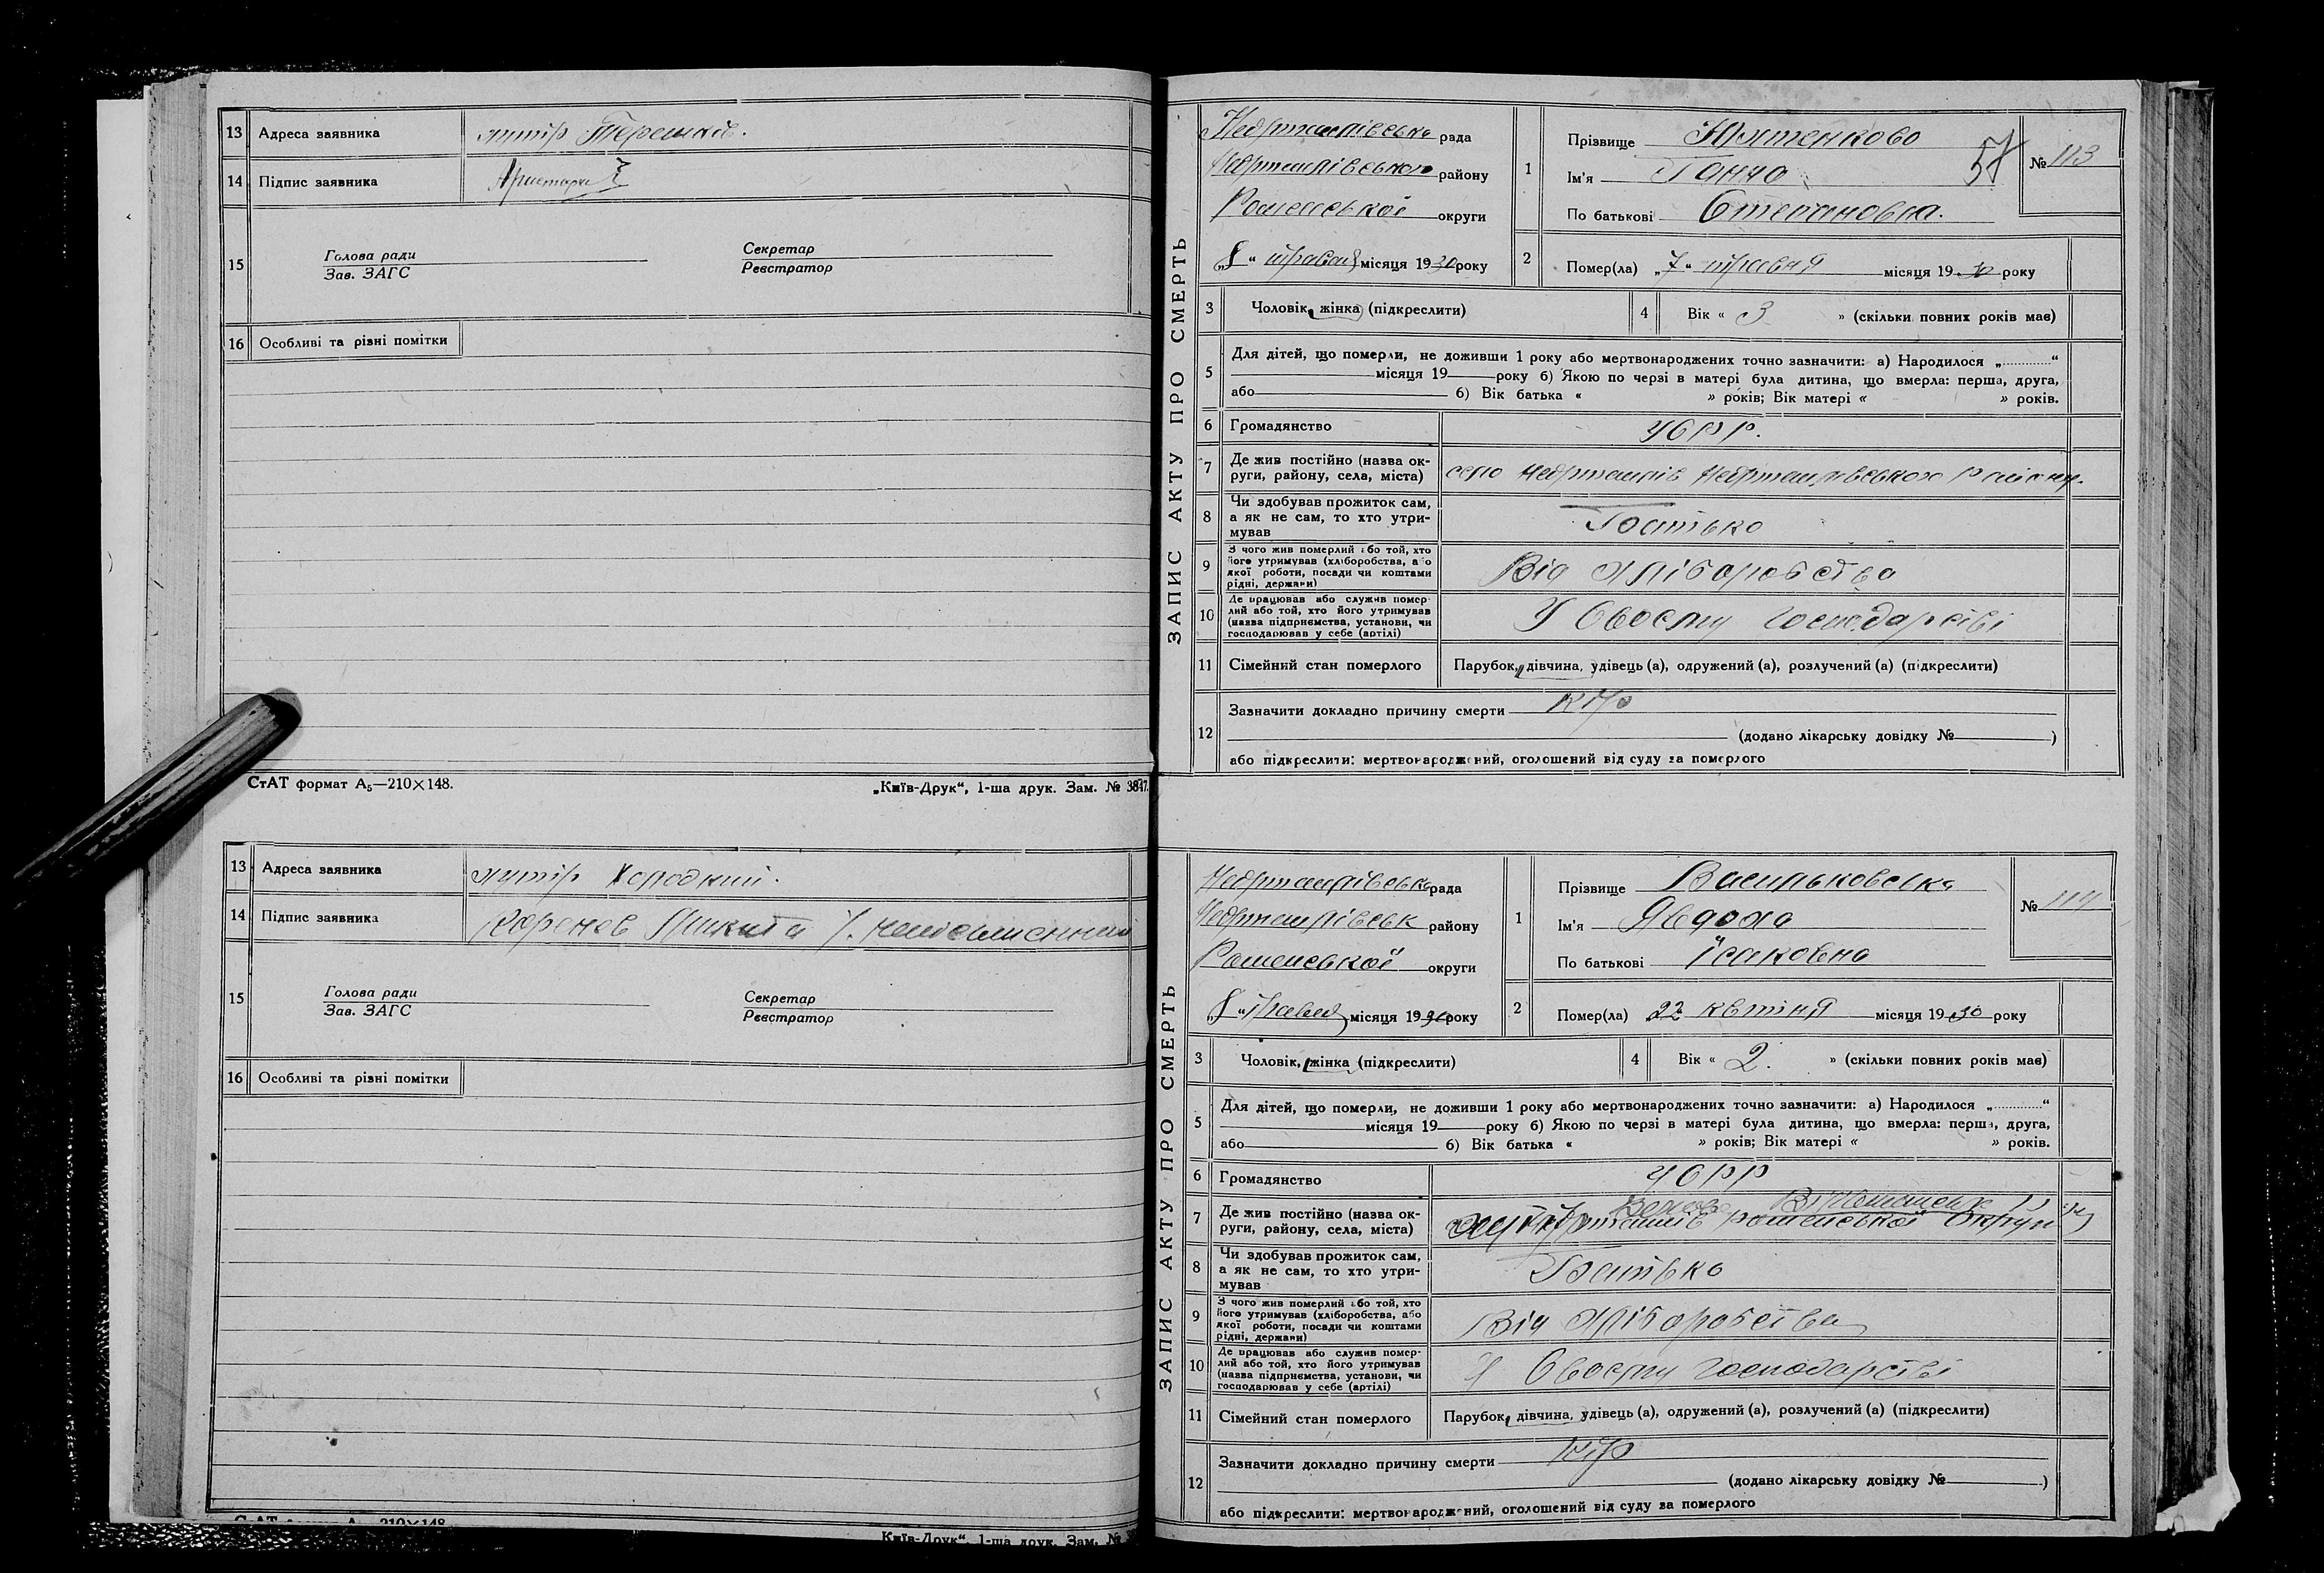 13 Адреса заявника хутір Терешків.
14 Підпис заявника
15 Голова ради
Зав. ЗАГС
Секретар
Реєстратор
16 Особливі та різні помітки
СтАТ формат А₅—210×148.
„Київ-Друк“, 1-ша друк. Зам. № 3847.
13 Адреса заявника хутір
14 Підпис заявника Микита
15 Голова ради
Зав. ЗАГС
Секретар
Реєстратор
16 Особливі та різні помітки
Київ-Друк“, 1-ша друк. Зам. №
ЗАПИС АКТУ ПРО СМЕРТЬ
рада
району
Роменської округи
„8“ травня місяця 1930 року
1 Прізвище
Ім'я Ганна
По батькові Степановна.
57
№ 113
2 Помер(ла) „7“ травня місяця 1930 року
3 Чоловік, жінка (підкреслити)
4 Вік « 3 » (скільки повних років має)
5 Для дітей, що померли, не доживши 1 року або мертвонароджених точно зазначити: а) Народилося „............“
місяця 19 року б) Якою по черзі в матері була дитина, що вмерла: перша, друга,
або б) Вік батька « » років; Вік матері « » років.
6 Громадянство УСРР.
7 Де жив постійно (назва ок-
руги, району, села, міста) село району.
8 Чи здобував прожиток сам,
а як не сам, то хто утри-
мував Батько
9 З чого жив померлий або той, хто
його утримував (хліборобства, або
якої роботи, посади чи коштами
рідні, держави) Від хліборобства
10 Де працював або служив помер-
лий або той, хто його утримував
(назва підприємства, установи, чи
господарював у себе (артілі) У Своєму господарстві
11 Сімейний стан померлого Парубок, дівчина, удівець (а), одружений (а), розлучений (а) (підкреслити)
12 Зазначити докладно причину смерти кір
(додано лікарську довідку № )
або підкреслити: мертвонароджений, оголошений від суду за померлого
ЗАПИС АКТУ ПРО СМЕРТЬ
рада
району
Роменської округи
„8“ травня місяця 1930 року
1 Прізвище Васильковська
Ім'я Явдоха
По батькові Ісаковна
№ 114
2 Помер(ла) 22 квітня місяця 1930 року
3 Чоловік, жінка (підкреслити)
4 Вік « 2. » (скільки повних років має)
5 Для дітей, що померли, не доживши 1 року або мертвонароджених точно зазначити: а) Народилося „............“
місяця 19 року б) Якою по черзі в матері була дитина, що вмерла: перша, друга,
або б) Вік батька « » років; Вік матері « » років.
6 Громадянство УСРР
7 Де жив постійно (назва ок-
руги, району, села, міста) роменської округи
8 Чи здобував прожиток сам,
а як не сам, то хто утри-
мував Батько
9 З чого жив померлий або той, хто
його утримував (хліборобства, або
якої роботи, посади чи коштами
рідні, держави) Від хліборобства
10 Де працював або служив помер-
лий або той, хто його утримував
(назва підприємства, установи, чи
господарював у себе (артілі) У Своєму господарстві
11 Сімейний стан померлого Парубок, дівчина, удівець (а), одружений (а), розлучений (а) (підкреслити)
12 Зазначити докладно причину смерти кір
(додано лікарську довідку № )
або підкреслити: мертвонароджений, оголошений від суду за померлого